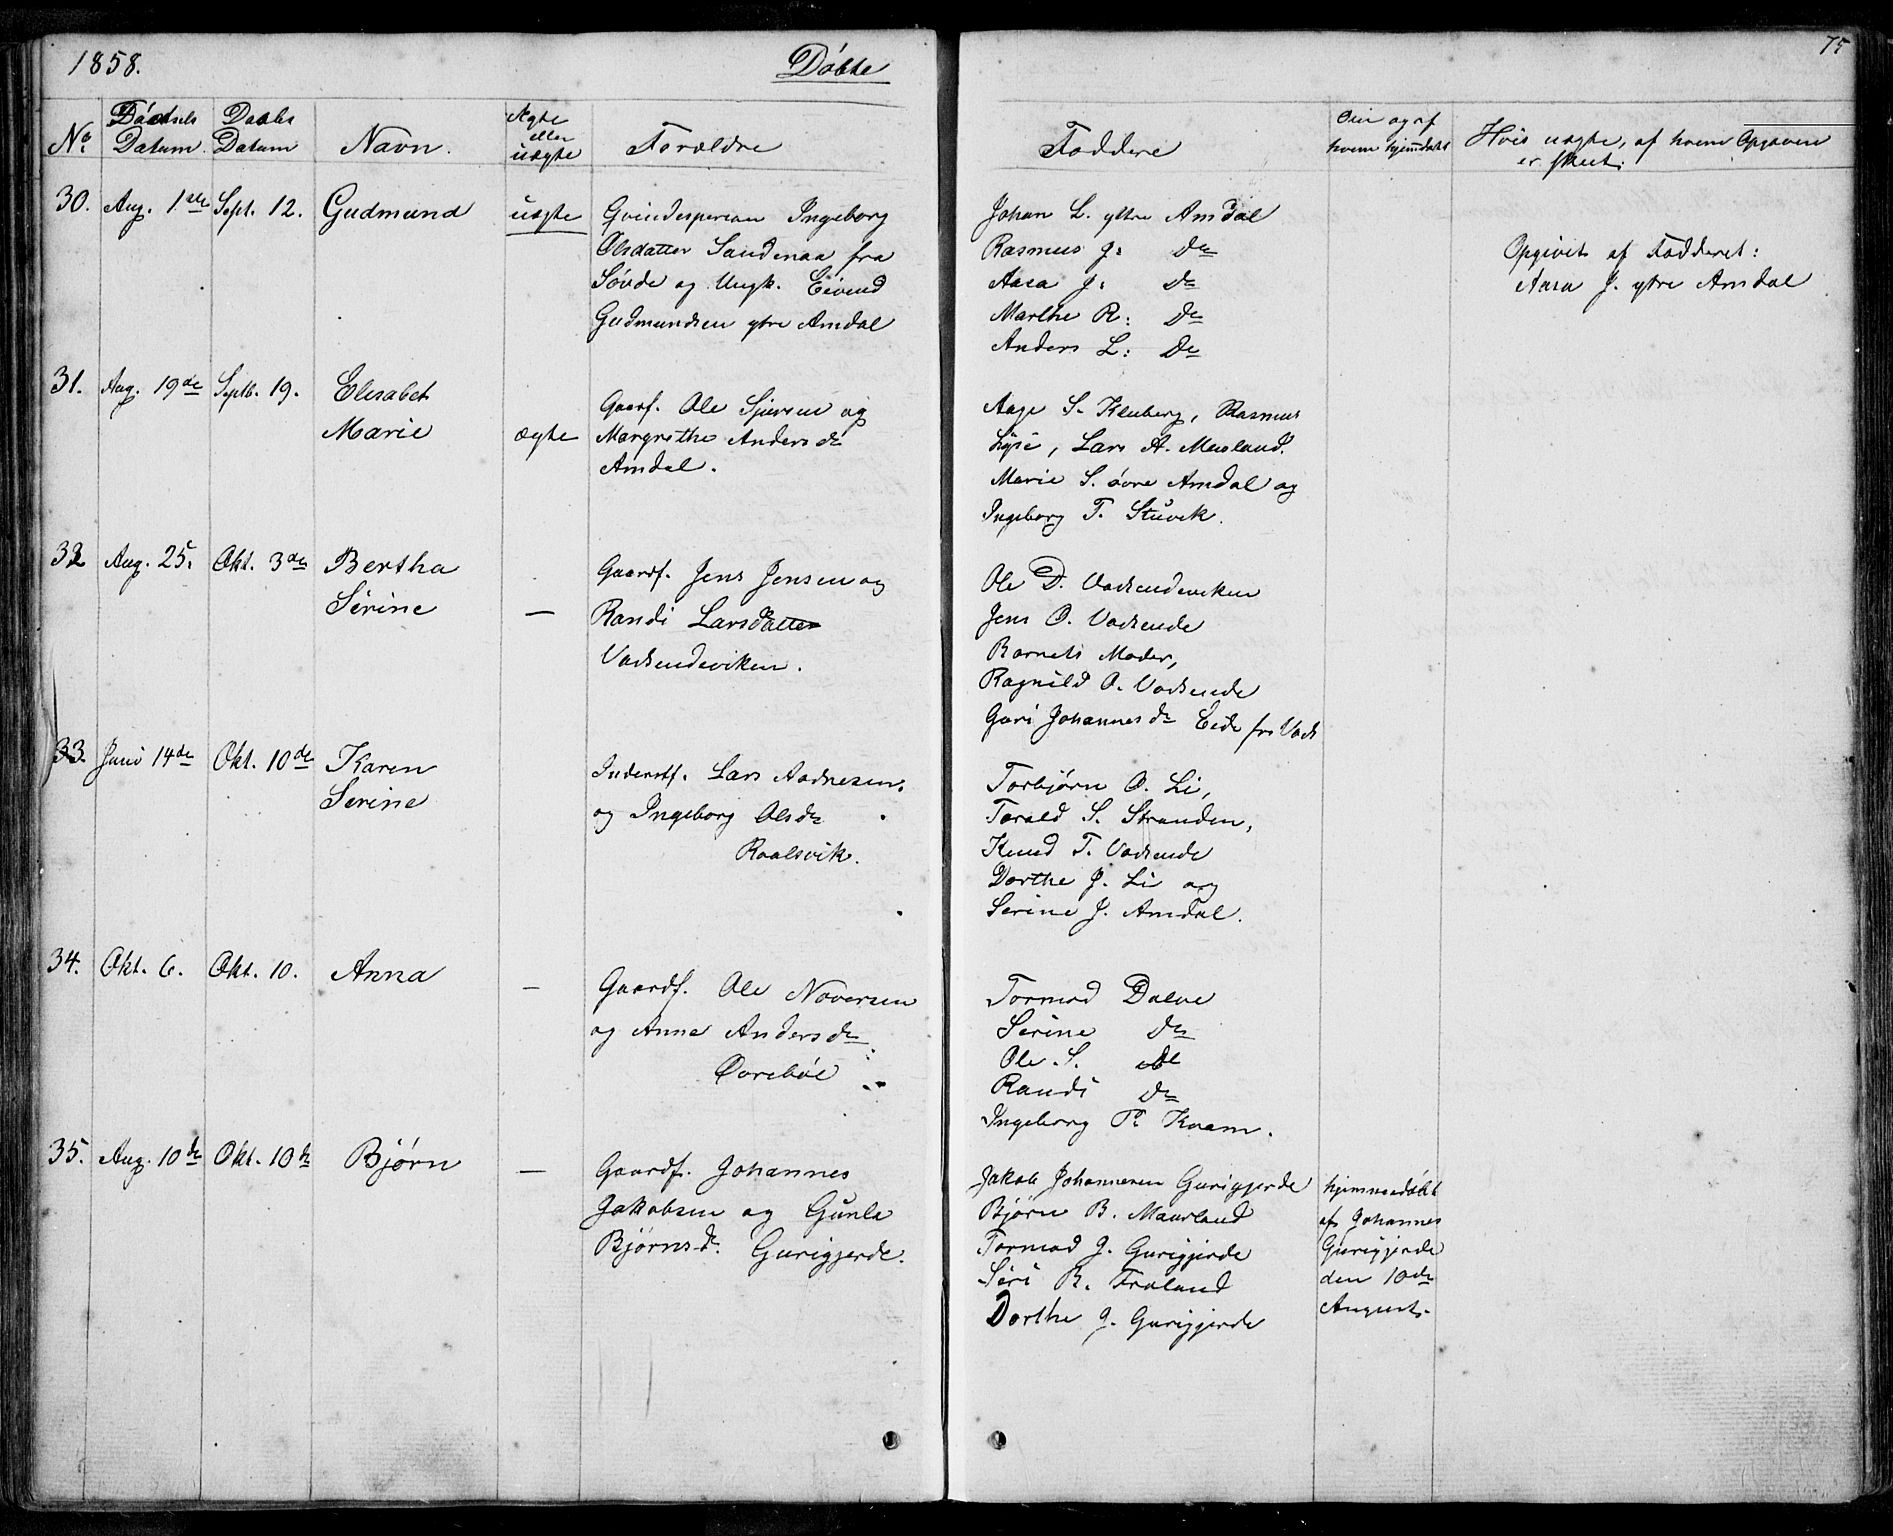 1858.
Döbte
75
No.
Födsels Datum.
Daabs Datum
Navn.
Ægte eller uægte
Forældre
Faddere
Om og af hvem hjemdøbt
Hvis uægte, af hvem Opgaven er skeet.
30. Aug. 1ste Sept. 12. Gudmund uægte
Qvindesperson Ingeborg
Olsdatter Sandenaa fra
Søvde og Ungk. Eivind
Gudmundsen ytre Amdal
Johan L. yttre Amdal
Rasmus J: Do
Aasa J: Do
Marthe R: Do
Anders L: Do
Opgivet af Fadderet:
Aasa J. ytre Amdal
31. Aug. 19de Septb. 19. Elisabet
Marie ægte
Gaarf. Ole Sjursen og
Margrethe Andersdr
Amdal.
Aage S. Kleiberg, Rasmus
Løge, Lars A. Mæland.
Marie S. øvre Amdal og
Ingeborg T. Stuvik.
32 Aug. 25. Okt. 3de Bertha
Serine —
Gaardf. Jens Jensen og
Randi Larsdatter
Vadsendeviken.
Ole D. Vadsendeviken
Jens O. Vadsende
Barnets Moder,
Ragnild O. Vadsende
Guri Johannesdr Eide fr. Vads
33. Juni 14de Okt. 10de Karen
Serine
Inderstf. Lars Aadnesen
og Ingeborg Olsdr
Roalsvik.
Torbjørn O. Li,
Torald S. Stranden,
Knud T. Vadsende
Dorthe J. Li og
Serine J. Amdal.
34. Okt. 6. Okt. 10. Anna —
Gaardf. Ole Noversen
og Anna Andersdr
Ovrebøe
Tormod Dalve
Serine Do
Ole S. Do
Randi Do
Ingeborg P. Kvam.
35. Aug. 10de Okt. 10de Bjørn —
Gaardf. Johannes
Jakobsen og Gunla
Bjørnsdr. Gurigjerde.
Jakob Johannesen Gurigjerde
Bjørn B. Maurland
Tormod J. Gurigjerde
Siri R. Froland
Dorthe J. Gurigjerde
hjemmedøbt
af Johannes
Gurigjerde
den 10de
August.